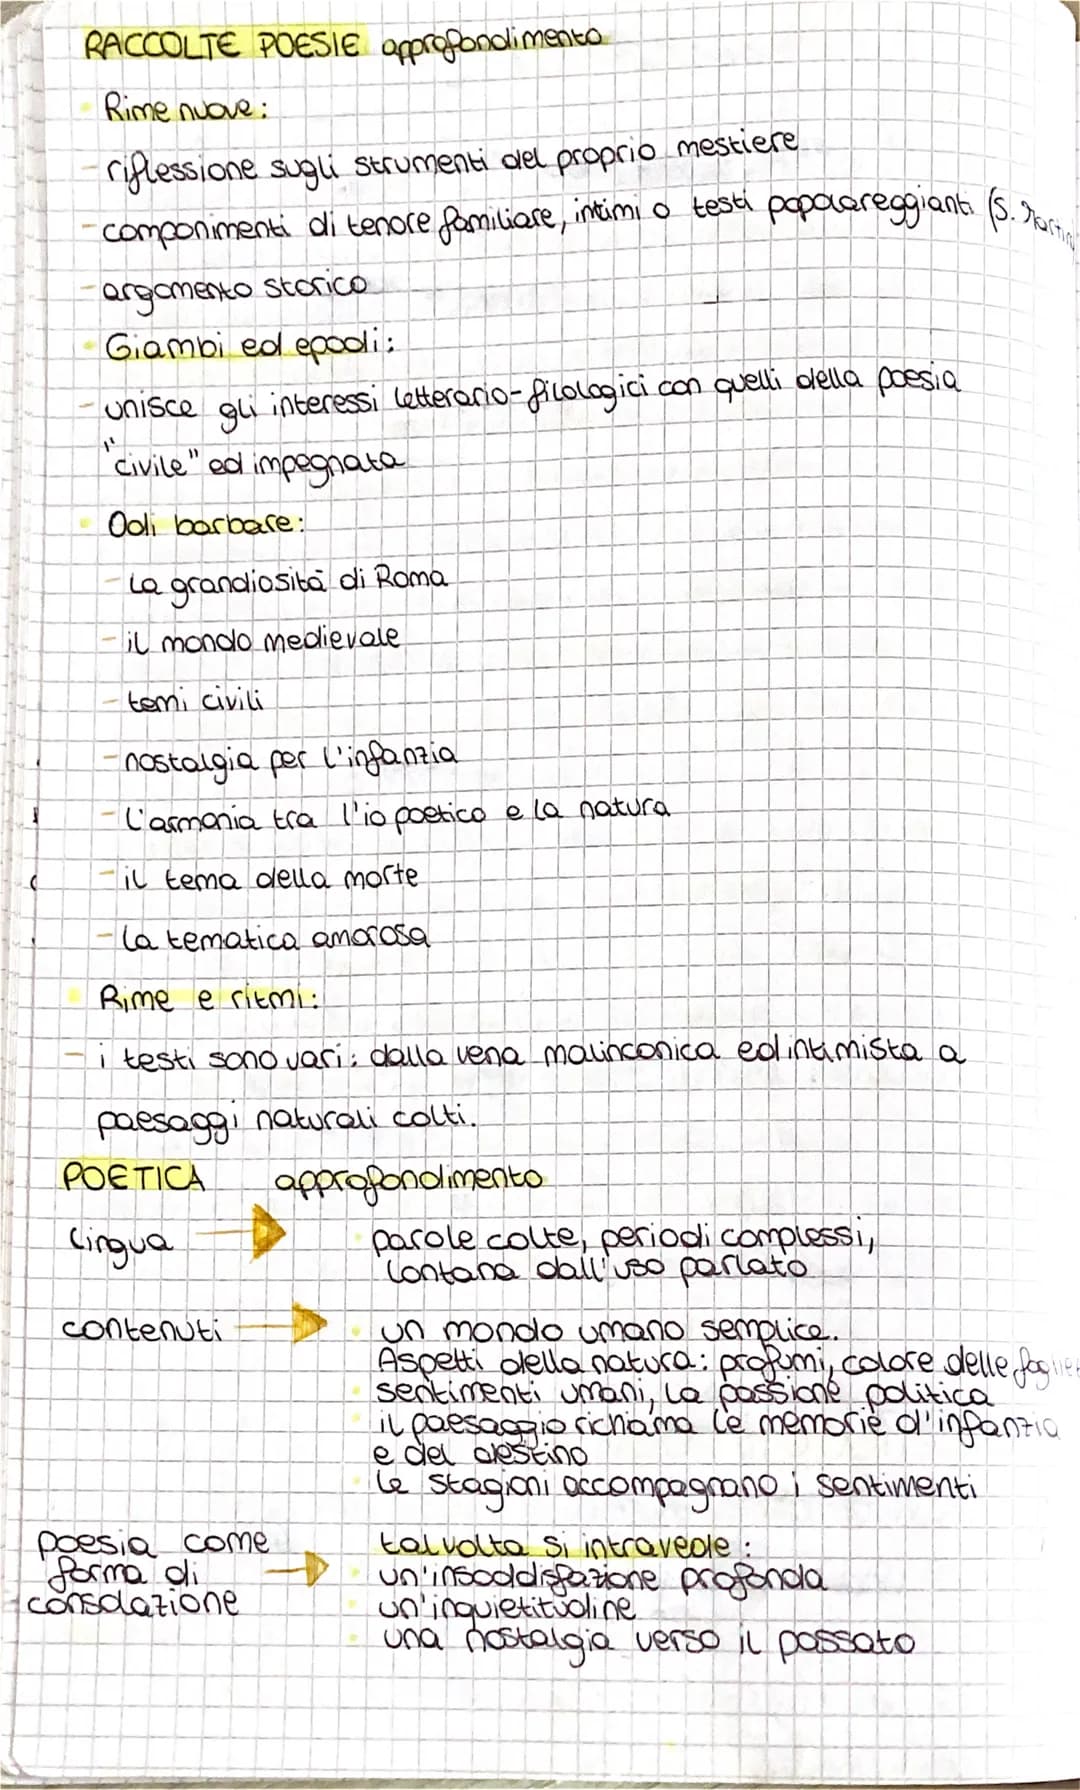 RACCOLTE POESIE approfondimento
Rime nuove:
- riflessione sugli strumenti del proprio mestiere
- componimenti di tenore familiare, intimi o testi popolareggianti (S. Martino
- argomento storico
Giambi ed epodi:
- unisce gli interessi letterario-filologici con quelli della poesia
"civile" ed impegnata
Odi barbare:
- la grandiosità di Roma
- il mondo medievale
- temi civili
- nostalgia per l'infanzia
- l'armonia tra l'io poetico e la natura
- il tema della morte
- la tematica amorosa
Rime e ritmi:
- i testi sono vari: dalla vena malinconica ed intimista a
paesaggi naturali colti.
POETICA approfondimento
lingua → parole colte, periodi complessi,
lontana dall'uso parlato
contenuti → un mondo umano semplice.
Aspetti della natura: profumi, colore delle foglie
sentimenti umani, la passione politica
il paesaggio richiama le memorie d'infanzia
e del destino
le stagioni accompagnano i sentimenti
poesia come talvolta si intravede:
forma di → un'insoddisfazione profonda
consolazione un'inquietitudine
una nostalgia verso il passato